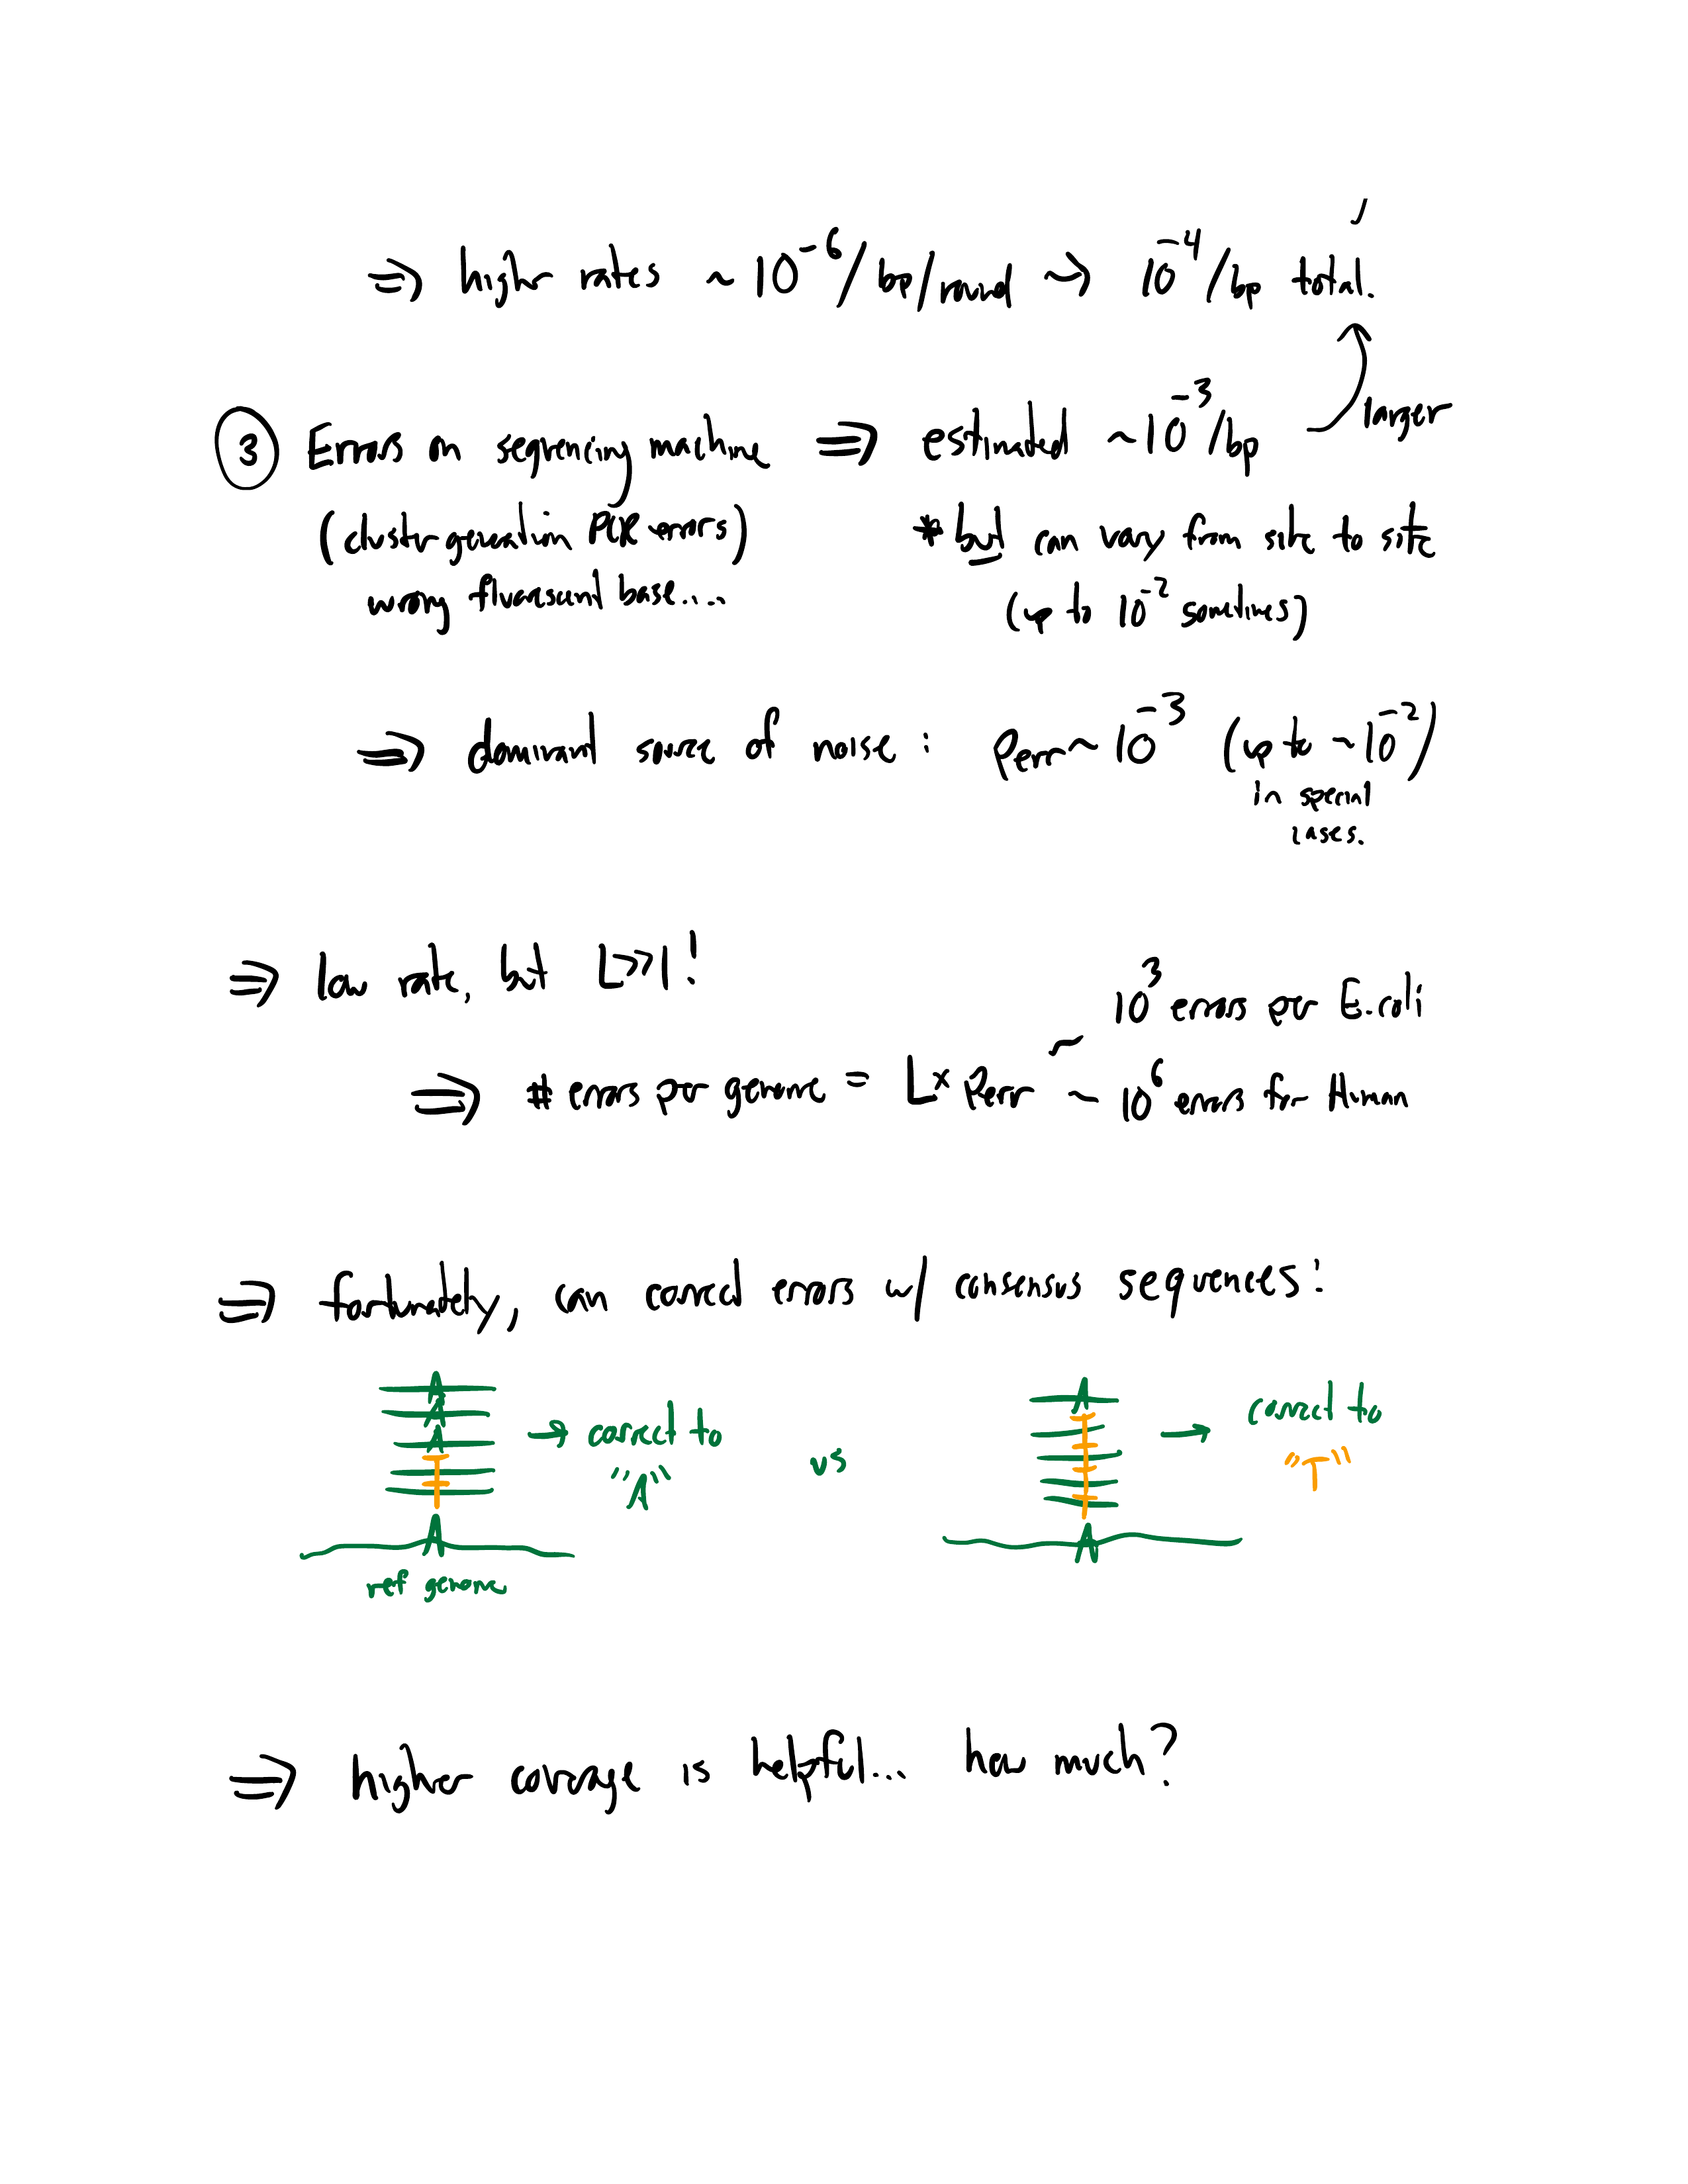 ⇒ higher rates ~ 10^-6/bp/round → 10^-4/bp total.
③ Errors on sequencing machine ⇒ estimated ~10^-3/bp
larger
(cluster generation PCR errors)
wrong fluorescent base....
*but can vary from site to site
(up to 10^-2 sometimes)
⇒ dominant source of noise : Perr ~ 10^-3 (up to ~10^-2)
in special
cases.
⇒ low rate, but L>>1!
⇒ # errors per genome = L x Perr ~ 10^3 errors per E.coli
~ 10^6 errors for Human
⇒ fortunately, can correct errors w/ consensus sequences:
A
A
A
T
T
A
ref genome
→ correct to
"A"
vs
A
T
T
T
T
A
→ correct to
"T"
⇒ higher coverage is helpful... how much?